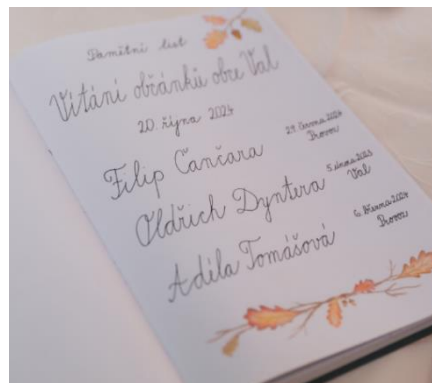 Pamětní list
Vítání občánků obce Val
20. října 2024
Filip Čančara
29. června 2024
Provoz
Oldřich Dyntera
5. února 2023
Val
Adéla Tomášová
6. března 2024
Provoz